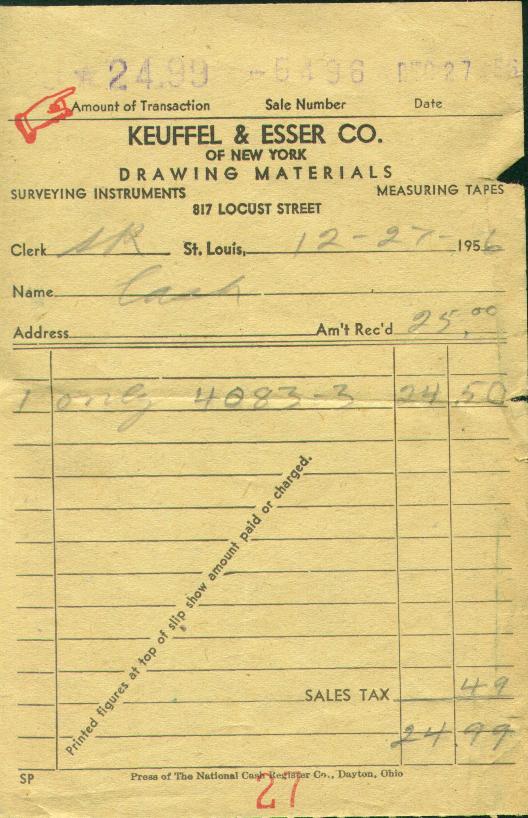 * 24.99 - 5496 DEC 27 56
Amount of Transaction Sale Number Date
KEUFFEL & ESSER CO.
OF NEW YORK
DRAWING MATERIALS
SURVEYING INSTRUMENTS MEASURING TAPES
817 LOCUST STREET
Clerk SR St. Louis, 12-27-1956
Name Cash
Address Am't Rec'd 25.00
1 only 4083-3 24.50
Printed figures at top of slip show amount paid or charged.
SALES TAX 49
24.99
SP Press of The National Cash Register Co., Dayton, Ohio
27